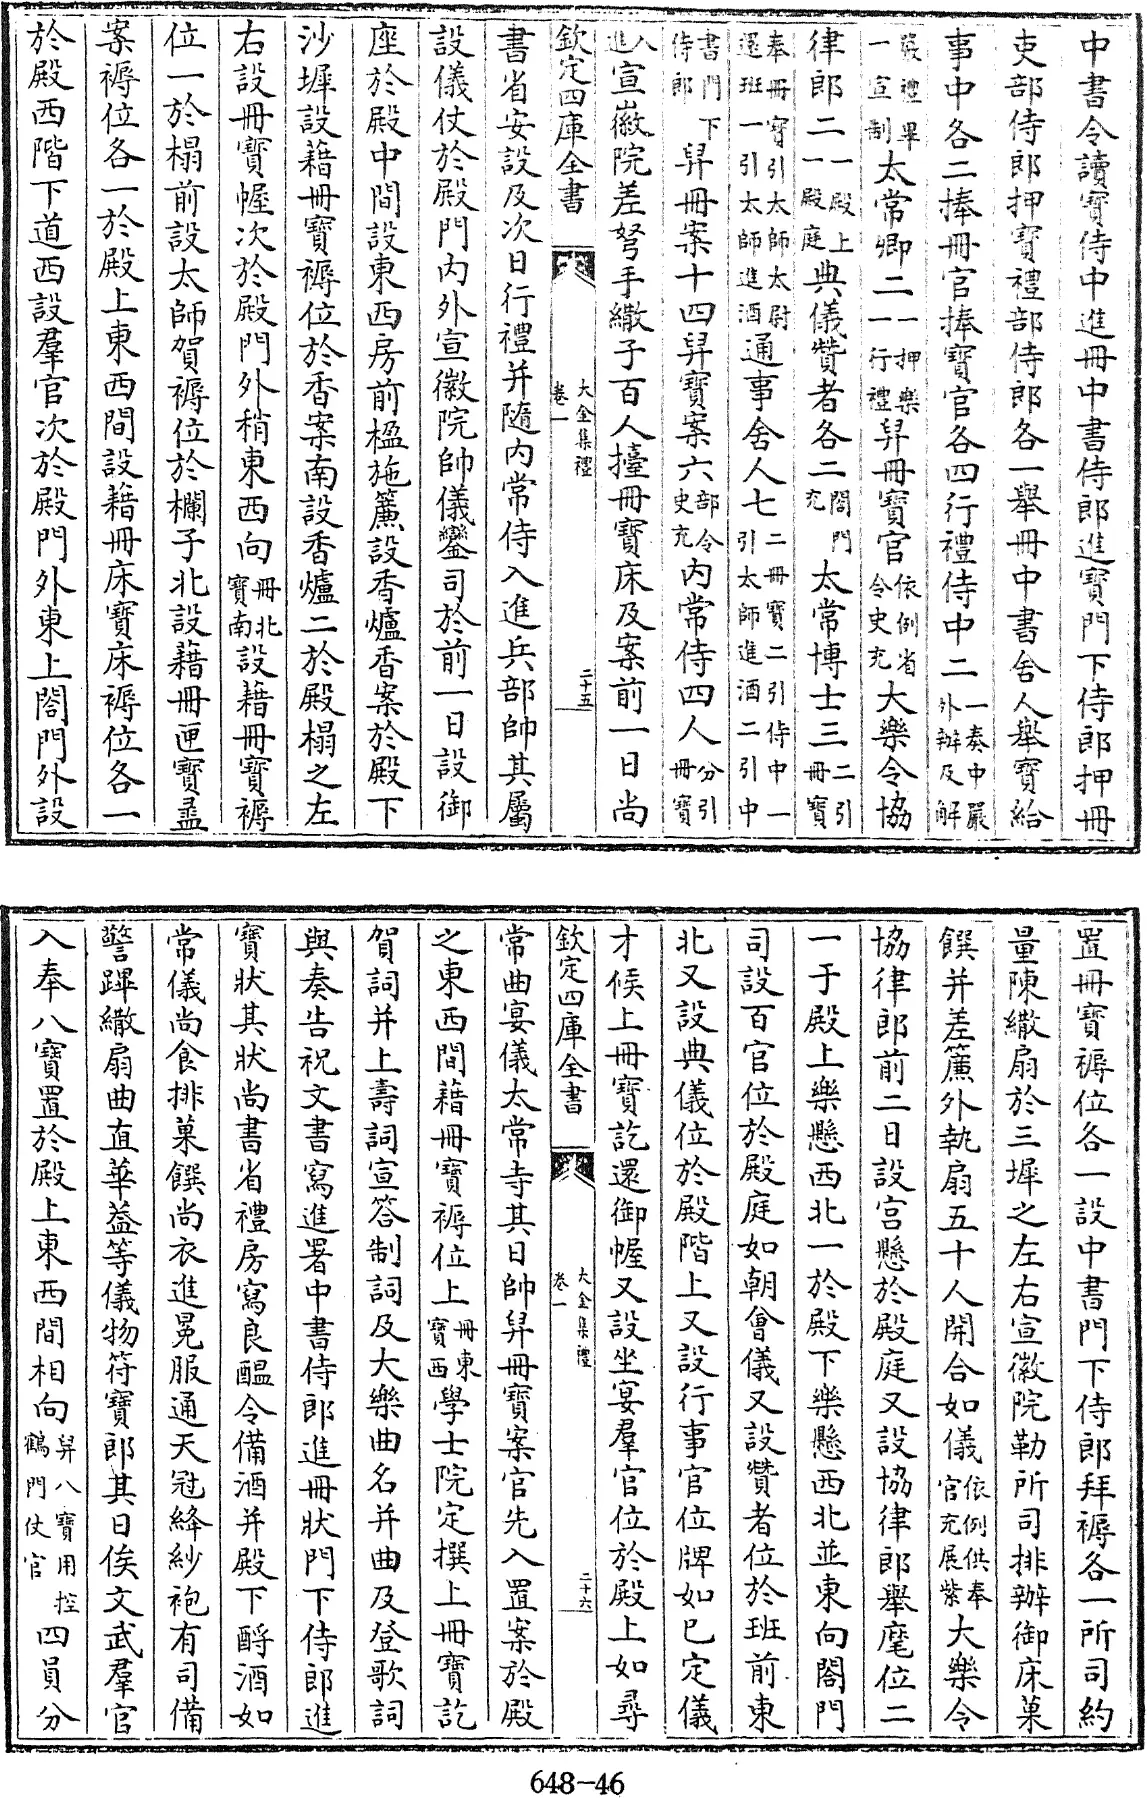 中書令讀寶侍中進冊中書侍郎進寶門下侍郎押冊
吏部侍郎押寶禮部侍郎各一舉冊中書舍人舉寶給
事中各二捧冊官捧寶官各四行禮侍中二一奏中嚴外辦及解
嚴禮畢一宣制太常卿二一押樂一行禮舁冊寶官依例省令史充大樂令協
律郎二一殿上一殿庭典儀贊者各二閤門充太常博士三二引冊寶
奉冊寶引太師太尉還班一引太師進酒通事舍人七二冊寶二引侍中一引太師進酒二引中
書門下侍郎舁冊案十四舁寶案六部令史充內常侍四人分引冊寶
入進宣徽院差弩手繖子百人擡冊寶床及案前一日尚
欽定四庫全書 大金集禮 卷一 二十五
書省安設及次日行禮并隨內常侍入進兵部帥其屬
設儀仗於殿門內外宣徽院帥儀鑾司於前一日設御
座於殿中間設東西房前楹施簾設香爐香案於殿下
沙墀設藉冊寶褥位於香案南設香爐二於殿榻之左
右設冊寶幄次於殿門外稍東西向冊北寶南設藉冊寶褥
位一於榻前設太師賀褥位於欄子北設藉冊匣寶盝
案褥位各一於殿上東西間設藉冊床寶床褥位各一
於殿西階下道西設羣官次於殿門外東上閤門外設
置冊寶褥位各一設中書門下侍郎拜褥各一所司約
量陳繖扇於三墀之左右宣徽院勒所司排辦御床菓
饌并差簾外執扇五十人開合如儀依例供奉官充展紫大樂令
協律郎前二日設宮懸於殿庭又設協律郎舉麾位二
一于殿上樂懸西北一於殿下樂懸西北並東向閤門
司設百官位於殿庭如朝會儀又設贊者位於班前東
北又設典儀位於殿階上又設行事官位牌如已定儀
才候上冊寶訖還御幄又設坐宴羣官位於殿上如尋
欽定四庫全書 大金集禮 卷一 二十六
常曲宴儀太常寺其日帥舁冊寶案官先入置案於殿
之東西間藉冊寶褥位上冊東寶西學士院定撰上冊寶訖
賀詞并上壽詞宣答制詞及大樂曲名并曲及登歌詞
與奏告祝文書寫進署中書侍郎進冊狀門下侍郎進
寶狀其狀尚書省禮房寫良醞令備酒并殿下酹酒如
常儀尚食排菓饌尚衣進冕服通天冠絳紗袍有司備
警蹕繖扇曲直華蓋等儀物符寶郎其日俟文武羣官
入奉八寶置於殿上東西間相向舁八寶用控鶴門仗官四員分
648-46